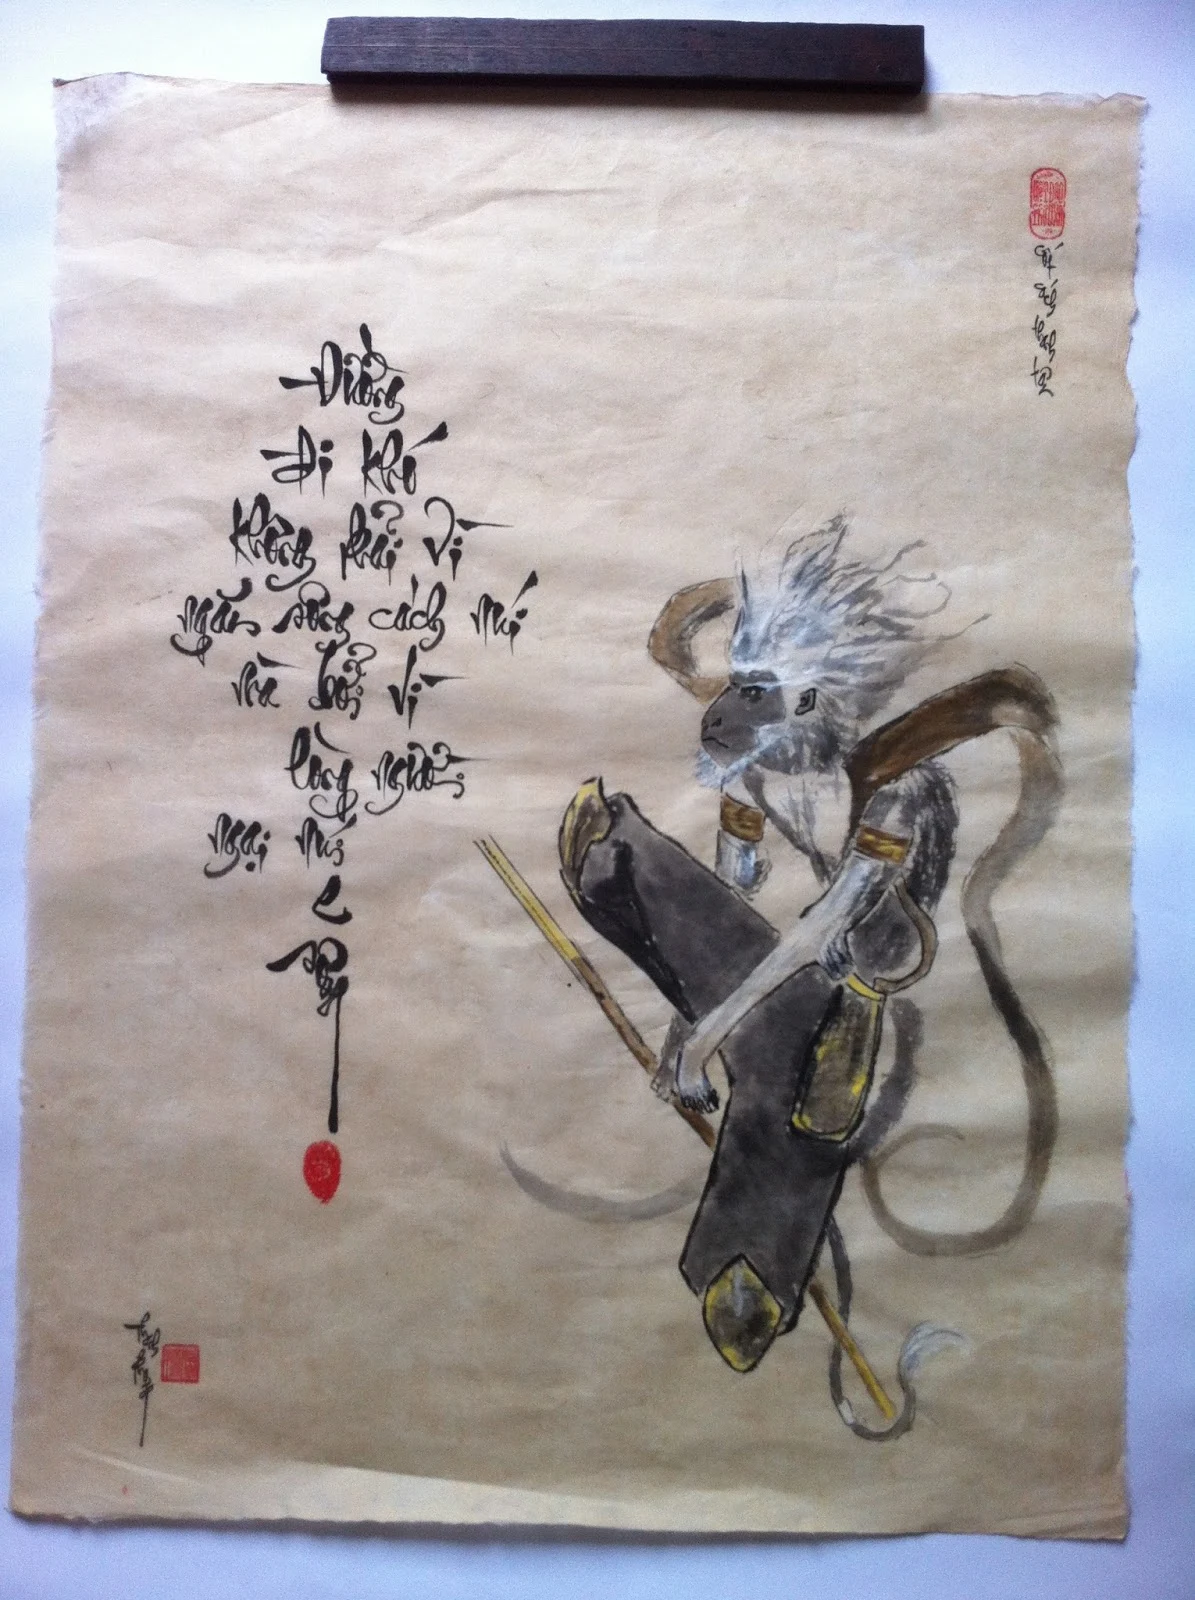 Đường
đi khó
không phải vì
ngăn sông cách núi
mà bởi vì
lòng người
ngại núi
e
sông